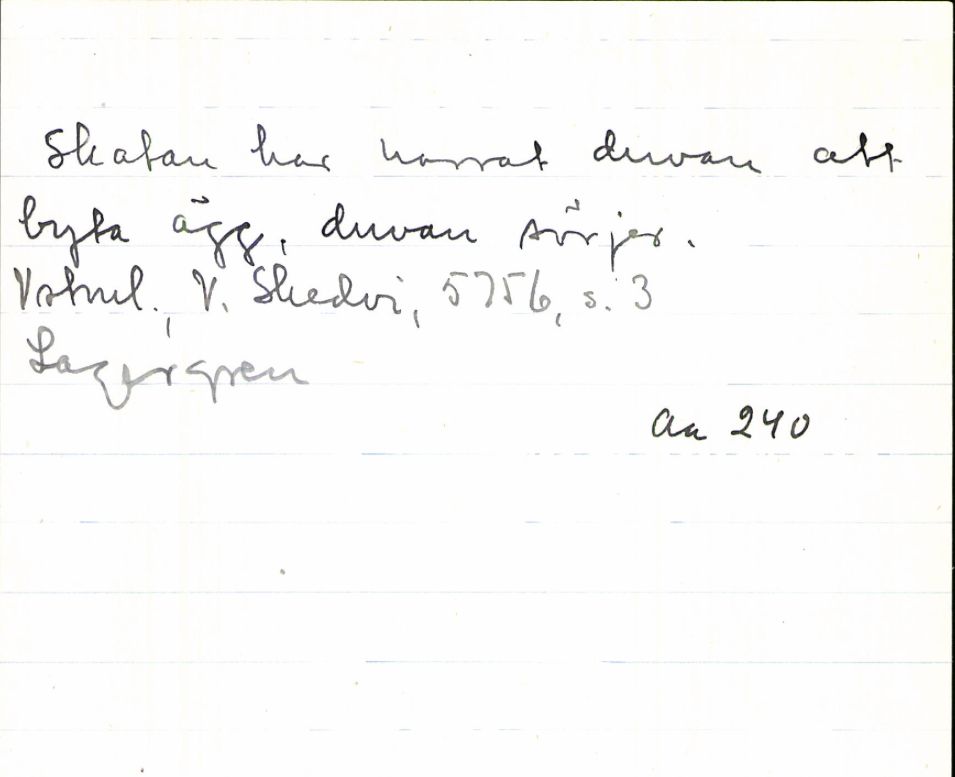 Skatan har narrat duvan att
byta ägg, duvan sörjer.
Vstml., V. Skedvi, 5756, s. 3
Lagergren
Aa 240